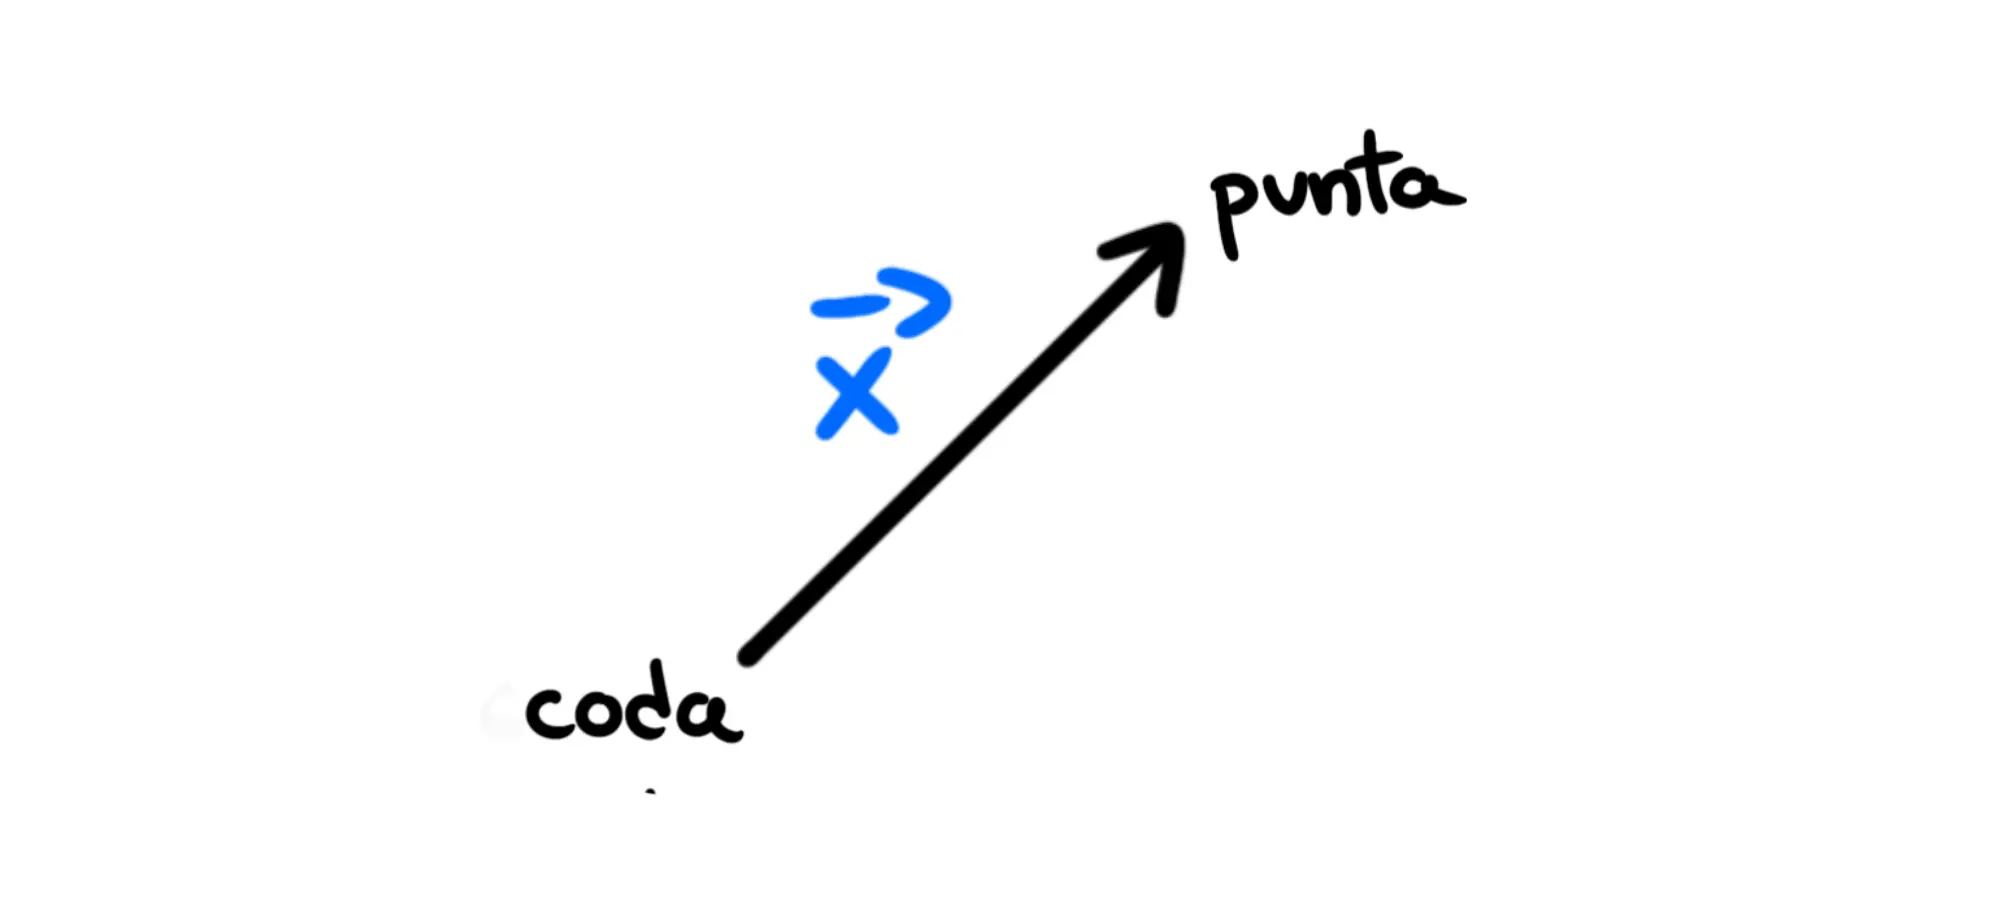 punta
x⃗
coda